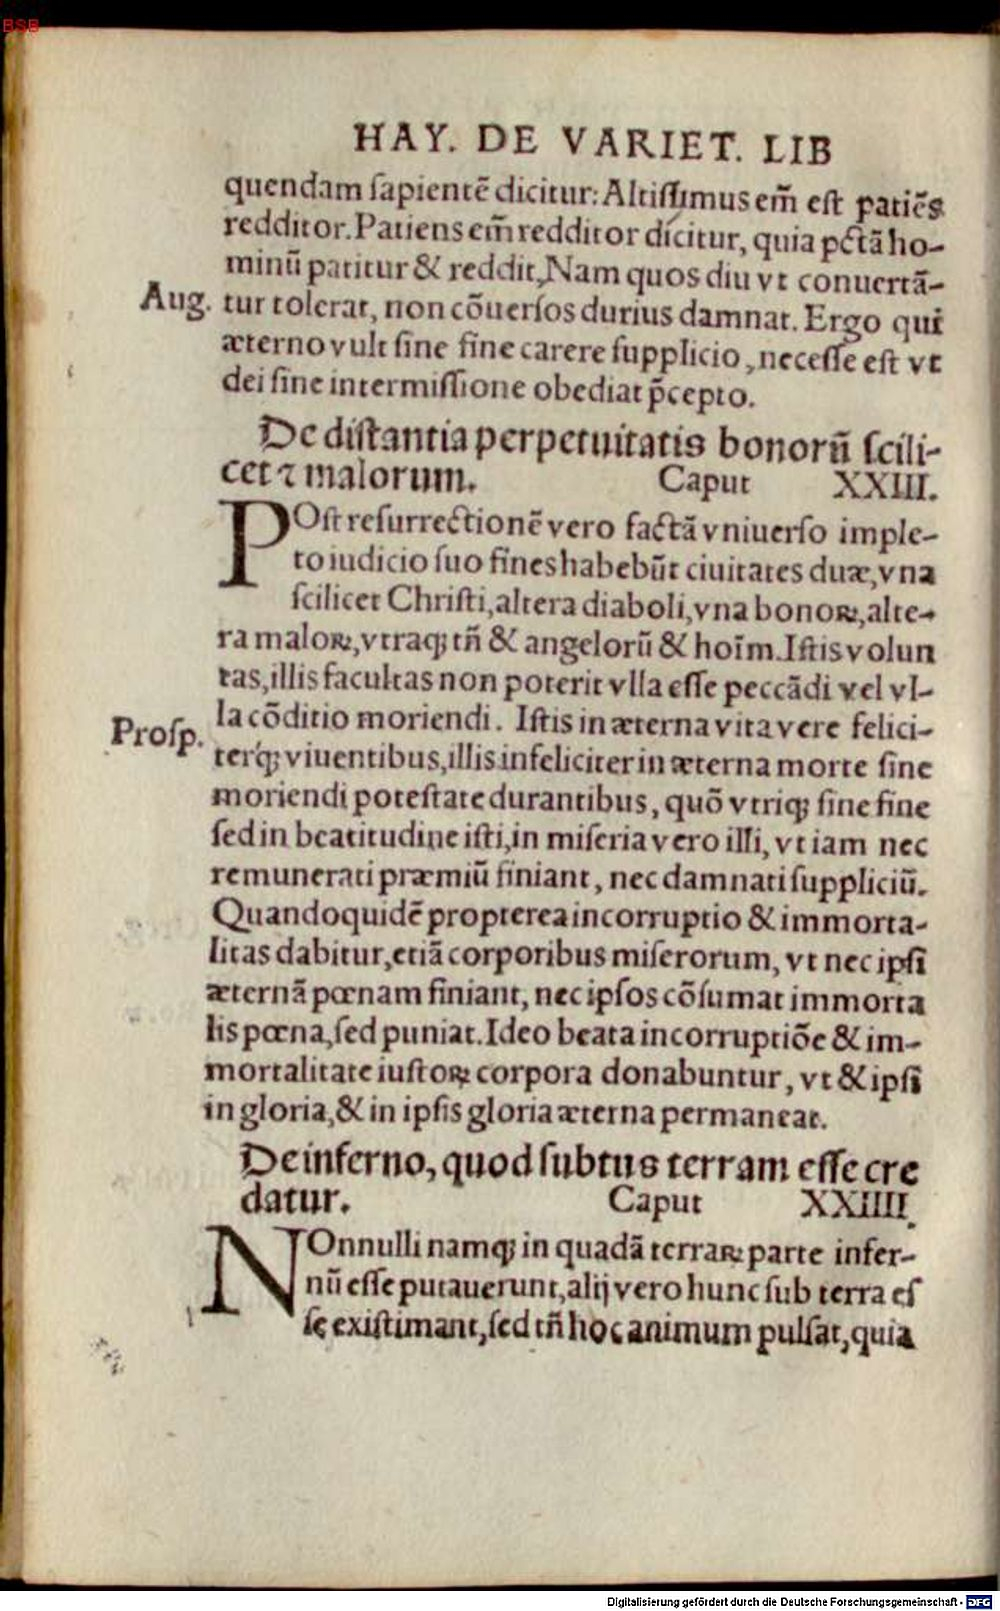 BSB
HAY. DE VARIET. LIB
quendam ſapientẽ dicitur: Altiſſimus em̃ eſt patiẽs
redditor. Patiens em̃ redditor dicitur, quia pctã ho-
minũ patitur & reddit, Nam quos diu vt conuertã-
Aug. tur tolerat, non cõuerſos durius damnat. Ergo qui
æterno vult ſine fine carere ſupplicio, neceſſe eſt vt
dei ſine intermiſſione obediat p̃cepto.
De diſtantia perpetuitatis bonorũ ſcili-
cet ⁊ malorum. Caput XXIII.
POſt reſurrectionẽ vero factã vniuerſo imple-
to iudicio ſuo fines habebũt ciuitates duæ, vna
ſcilicet Chriſti, altera diaboli, vna bonoꝝ, alte-
ra maloꝝ, vtraq; tñ & angelorũ & hoĩm. Iſtis volun
tas, illis facultas non poterit vlla eſſe peccãdi vel vl-
la cõditio moriendi. Iſtis in æterna vita vere felici-
Proſp. terq́; viuentibus, illis infeliciter in æterna morte ſine
moriendi poteſtate durantibus, quõ vtriq; ſine fine
ſed in beatitudine iſti, in miſeria vero illi, vt iam nec
remunerati præmiũ finiant, nec damnati ſuppliciũ.
Quandoquidẽ propterea incorruptio & immorta-
litas dabitur, etiã corporibus miſerorum, vt nec ipſi
æternã pœnam finiant, nec ipſos cõſumat immorta
lis pœna, ſed puniat. Ideo beata incorruptiõe & im-
mortalitate iuſtoꝝ corpora donabuntur, vt & ipſi
in gloria, & in ipſis gloria æterna permaneat.
De inferno, quod ſubtus terram eſſe cre
datur. Caput XXIIII.
NOnnulli namq; in quadã terraꝝ parte infer-
nũ eſſe putauerunt, alij vero hunc ſub terra eſ
ſę exiſtimant, ſed tñ hoc animum pulſat, quia
Digitalisierung gefördert durch die Deutsche Forschungsgemeinschaft - DFG